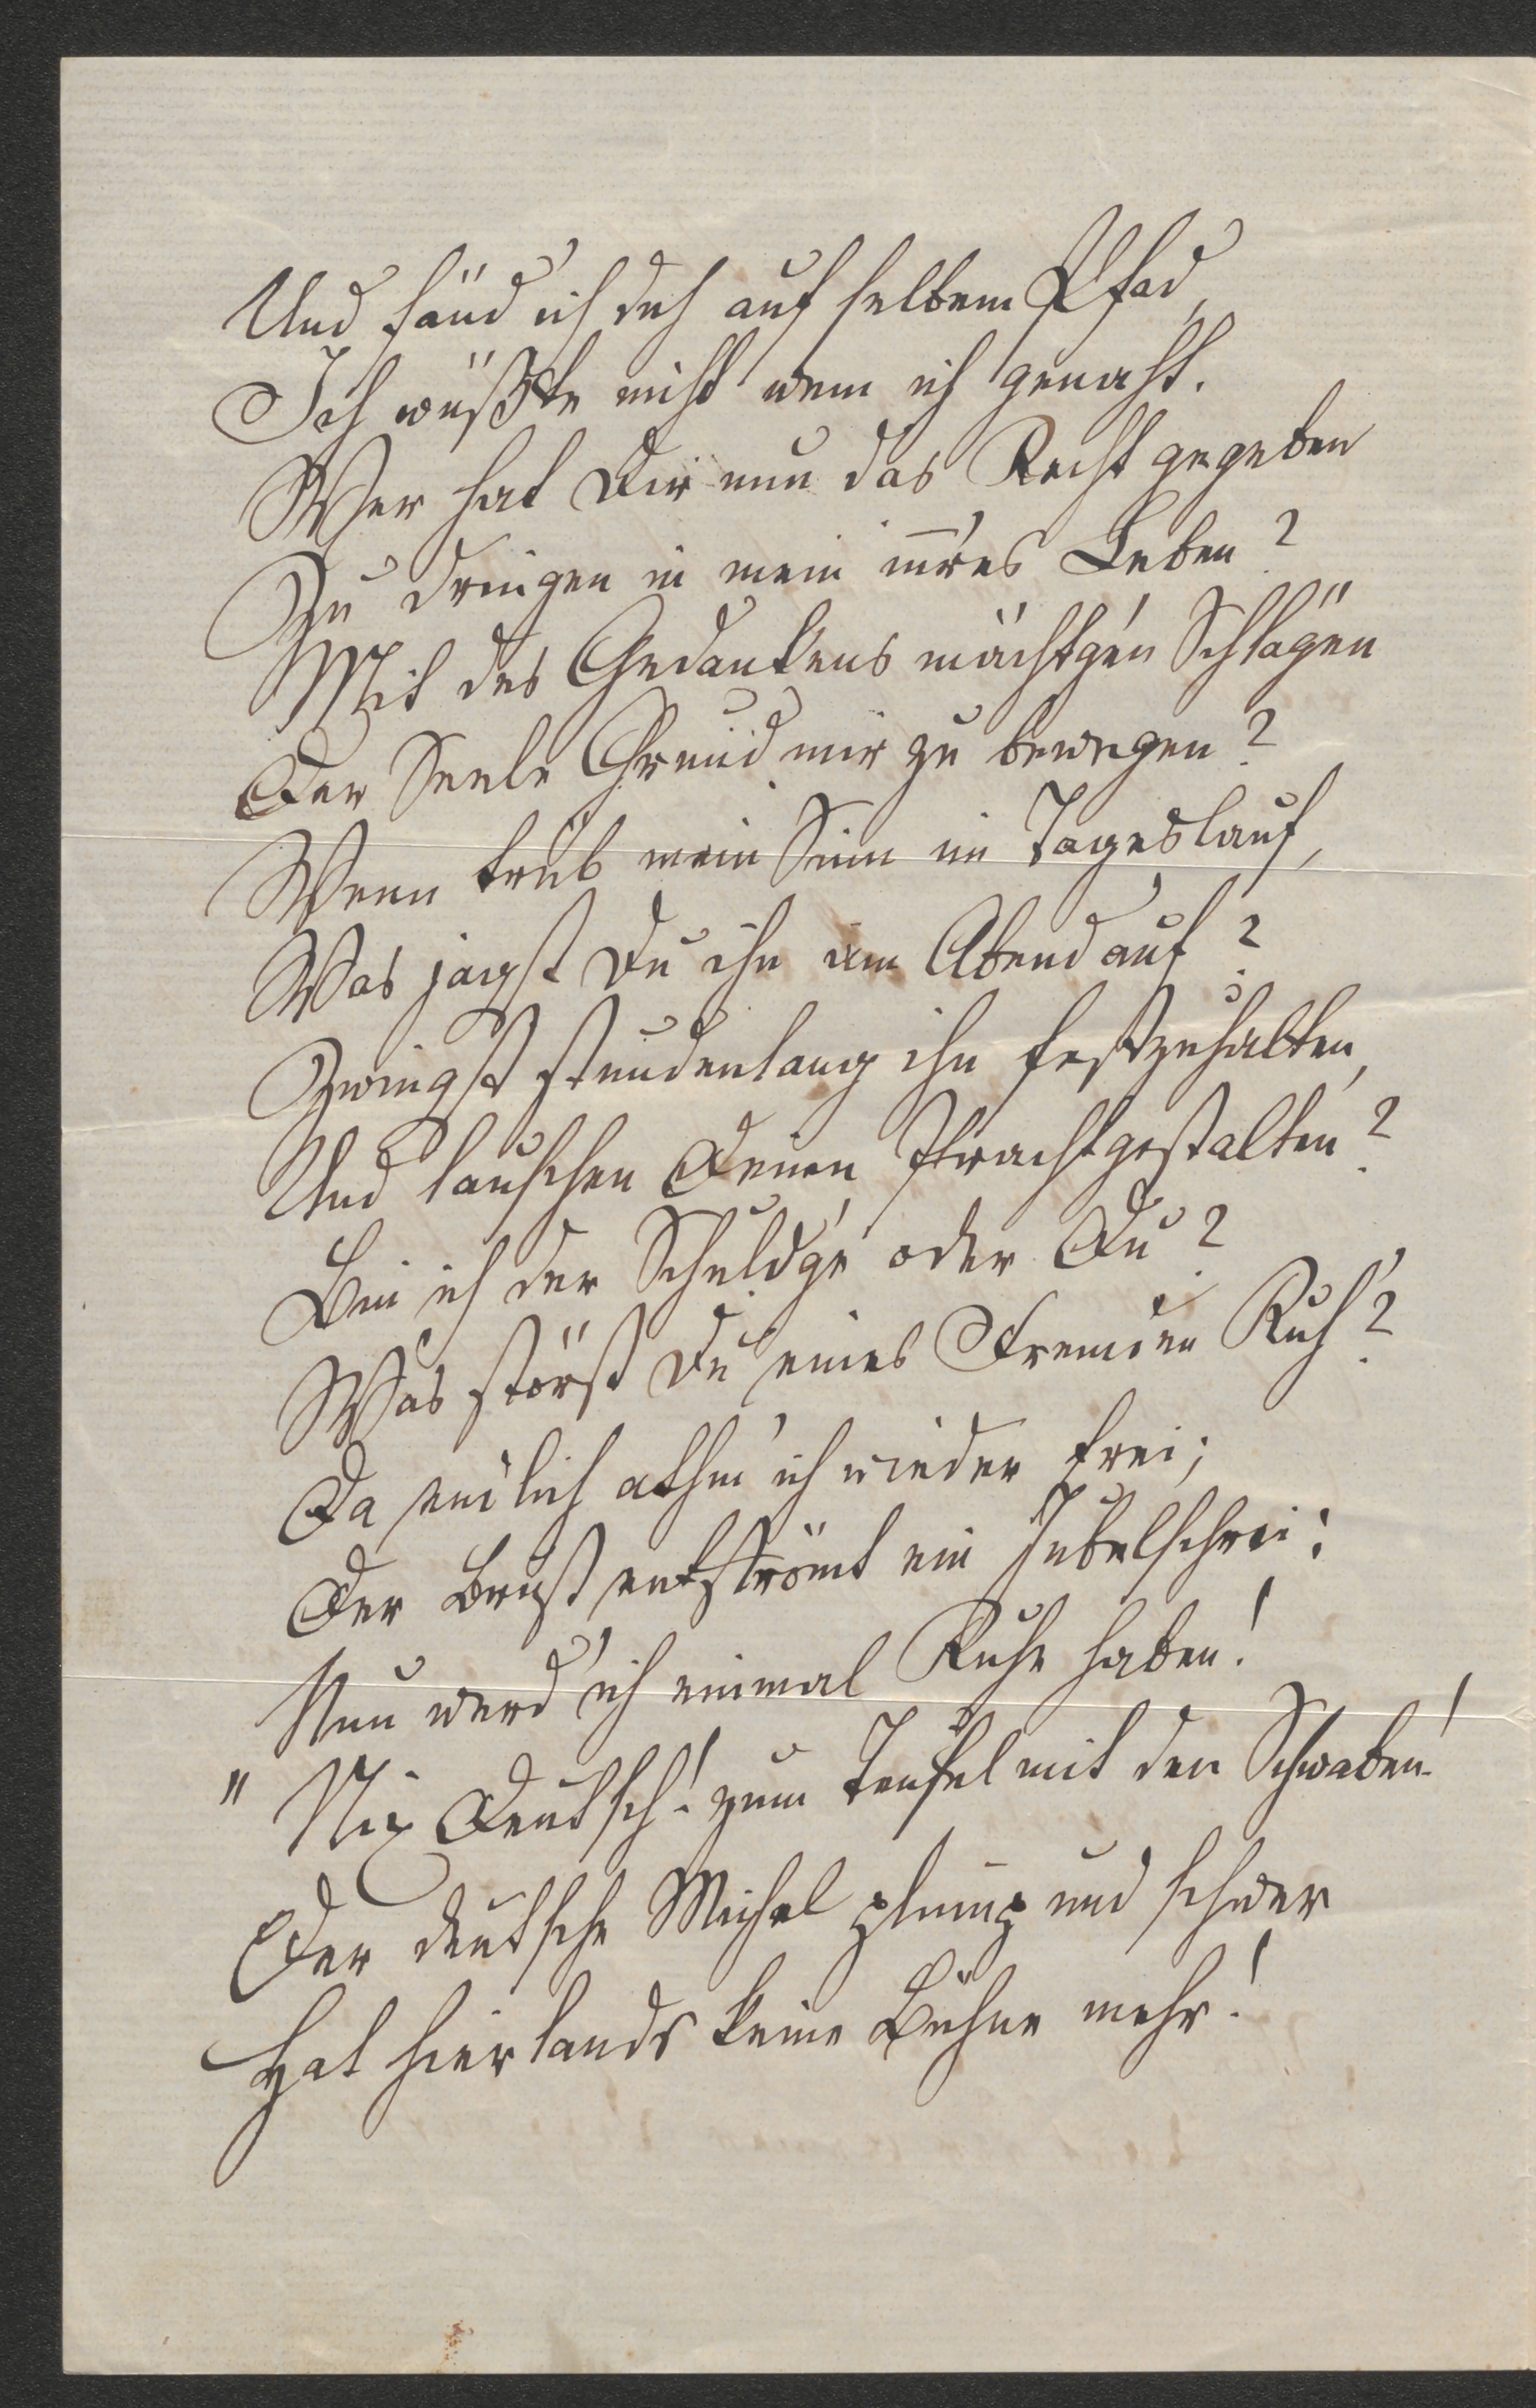 Und fänd' ich dich auf selbem Pfad,
Ich wüßte nicht wem ich genaht.
Wer hat Dir nun das Recht gegeben
Zu dringen in mein inn'res Leben?
Mit des Gedankens mächt'gen Schlägen
Der Seele Grund mir zu bewegen?
Wenn trüb mein Sinn im Tageslauf,
Was jagst Du ihn am Abend auf?
Zwingst stundenlang ihn festzuhalten,
Und lauschen Deinen Prachtgestalten?
Bin ich der Schuld'ge oder Du?
Was störst Du eines Fremden Ruh'?
Da endlich athm' ich wieder frei;
Der Brust entströmt ein Jubelschrei:
Nun werd' ich einmal Ruhe haben!
"Nix Deutsch! zum Teufel mit den Schwaben!
Der deutsche Michel plump und schwer
Hat hierlands keine Bühne mehr!